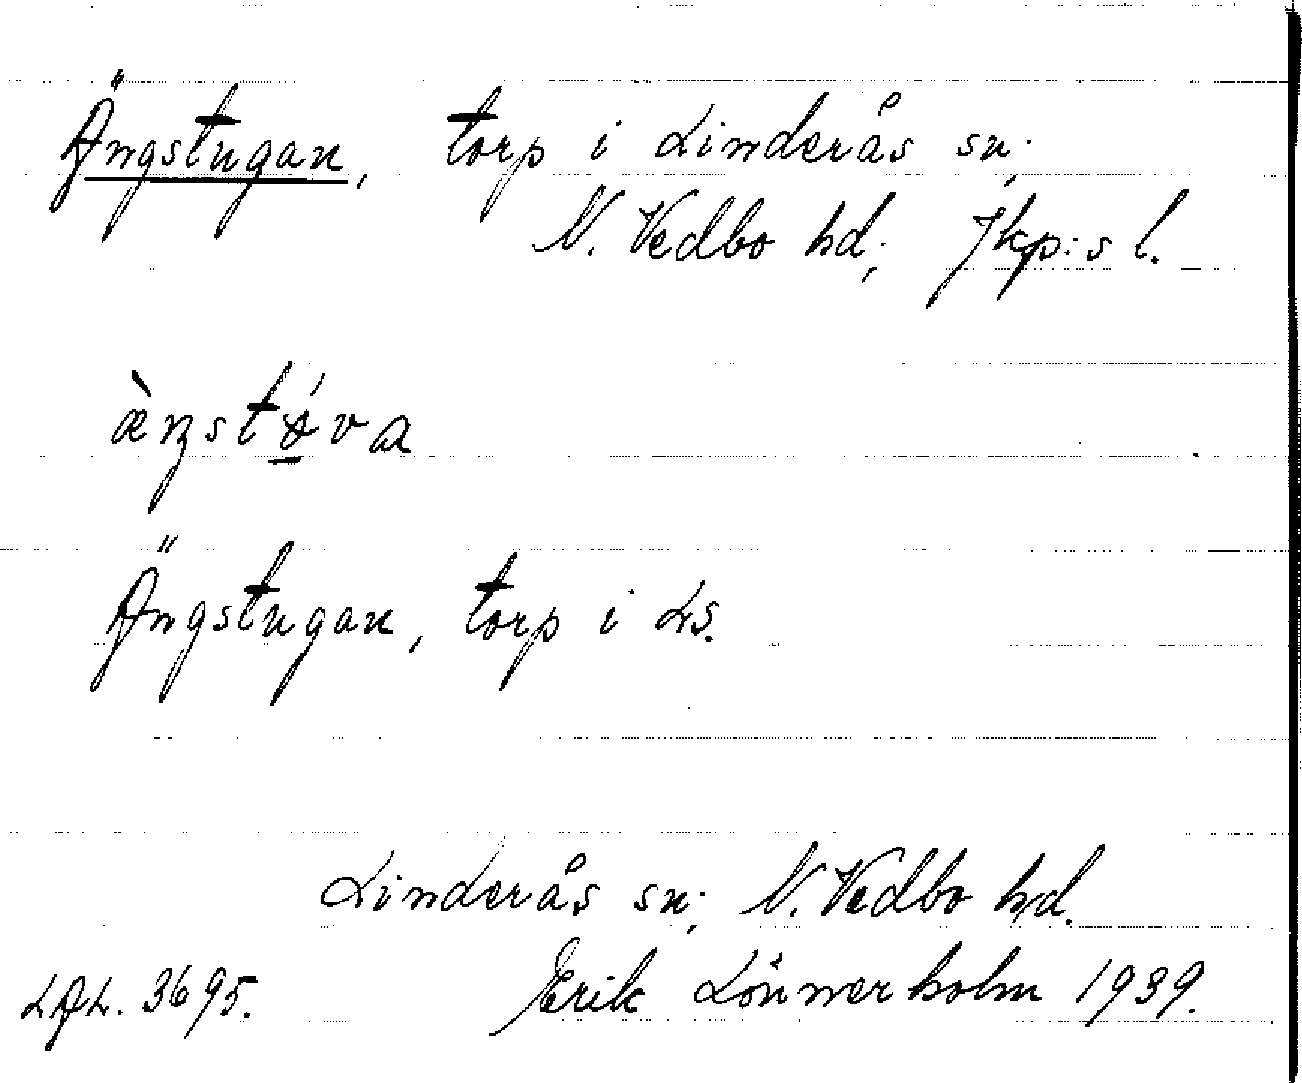 Ängstugan, torp i Linderås sn;
N. Vedbo hd; Jkp:s l.
Ängstugan, torp i Ls.
Linderås sn; N. Vedbo hd.
LAL. 3695. Erik Lönnerholm 1939.